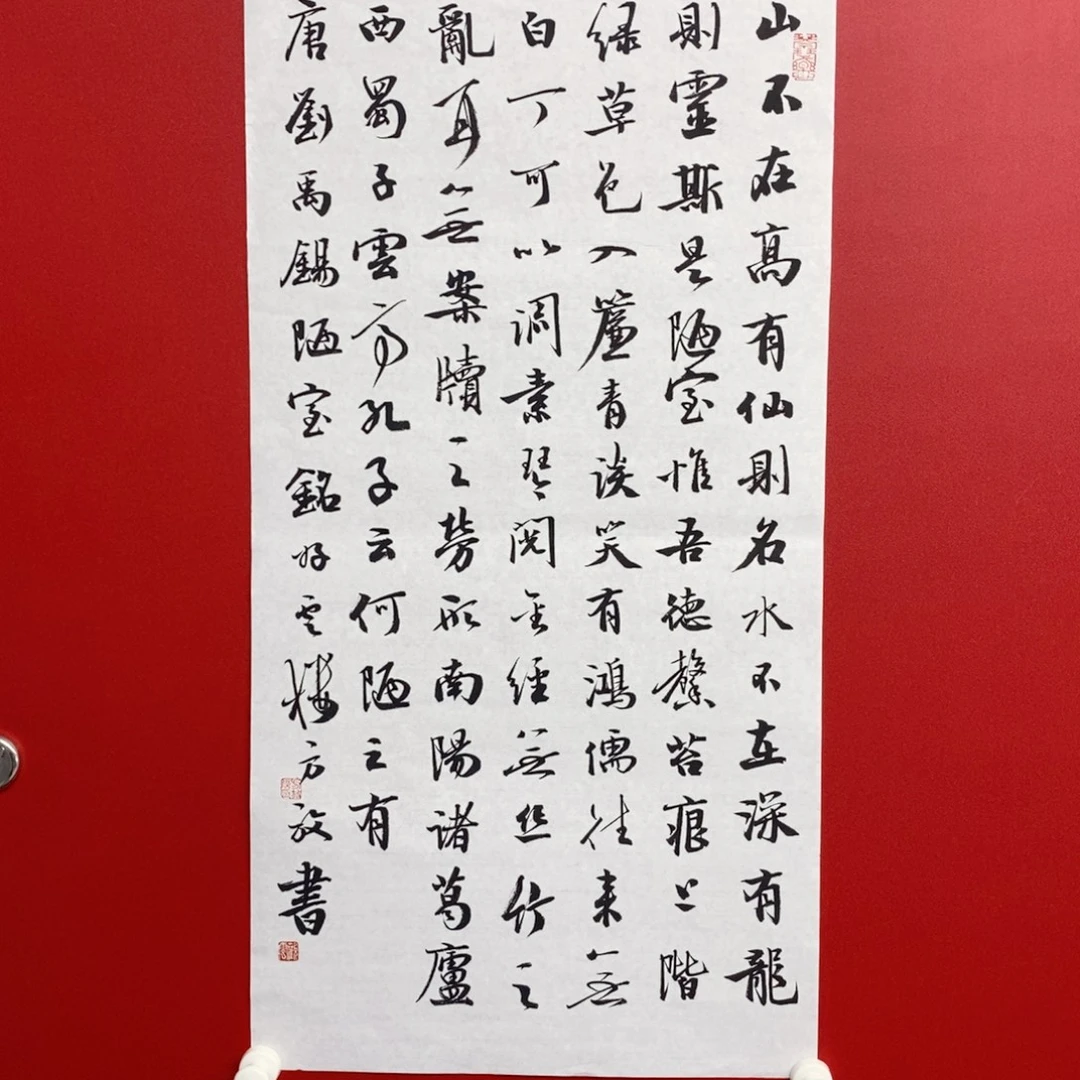 山不在高有仙則名水不在深有龍
則靈斯是陋室惟吾德馨苔痕上階
緑草色入簾青談笑有鴻儒往来無
白丁可以調素琴閱金經無丝竹之
亂耳無案牘之勞形南陽诸葛廬
西蜀子雲亭孔子云何陋之有
唐劉禹錫陋室銘好雲樓方放書